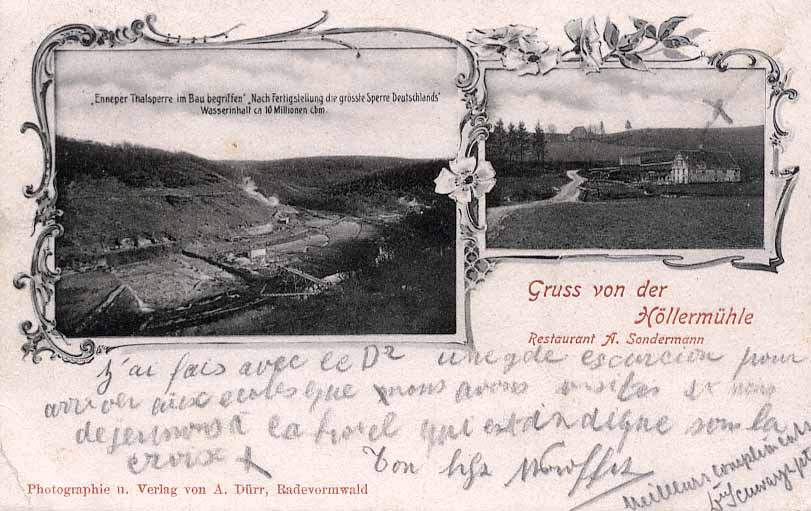 „Enneper Thalsperre im Bau begriffen" „Nach Fertigstellung die grösste Sperre Deutschlands"
Wasserinhalt ca 10 Millionen cbm.
Gruss von der
Höllermühle
Restaurant A. Sondermann
j'ai fais avec le Dr une gde escurcion pour
arriver aux ecoles que nous avons visites et nous
dejeunons à la hotel qui est indigne som la
croix x Ton
Meilleurs compliments
Dr Schwarz
Photographie u. Verlag von A. Dürr, Radevormwald